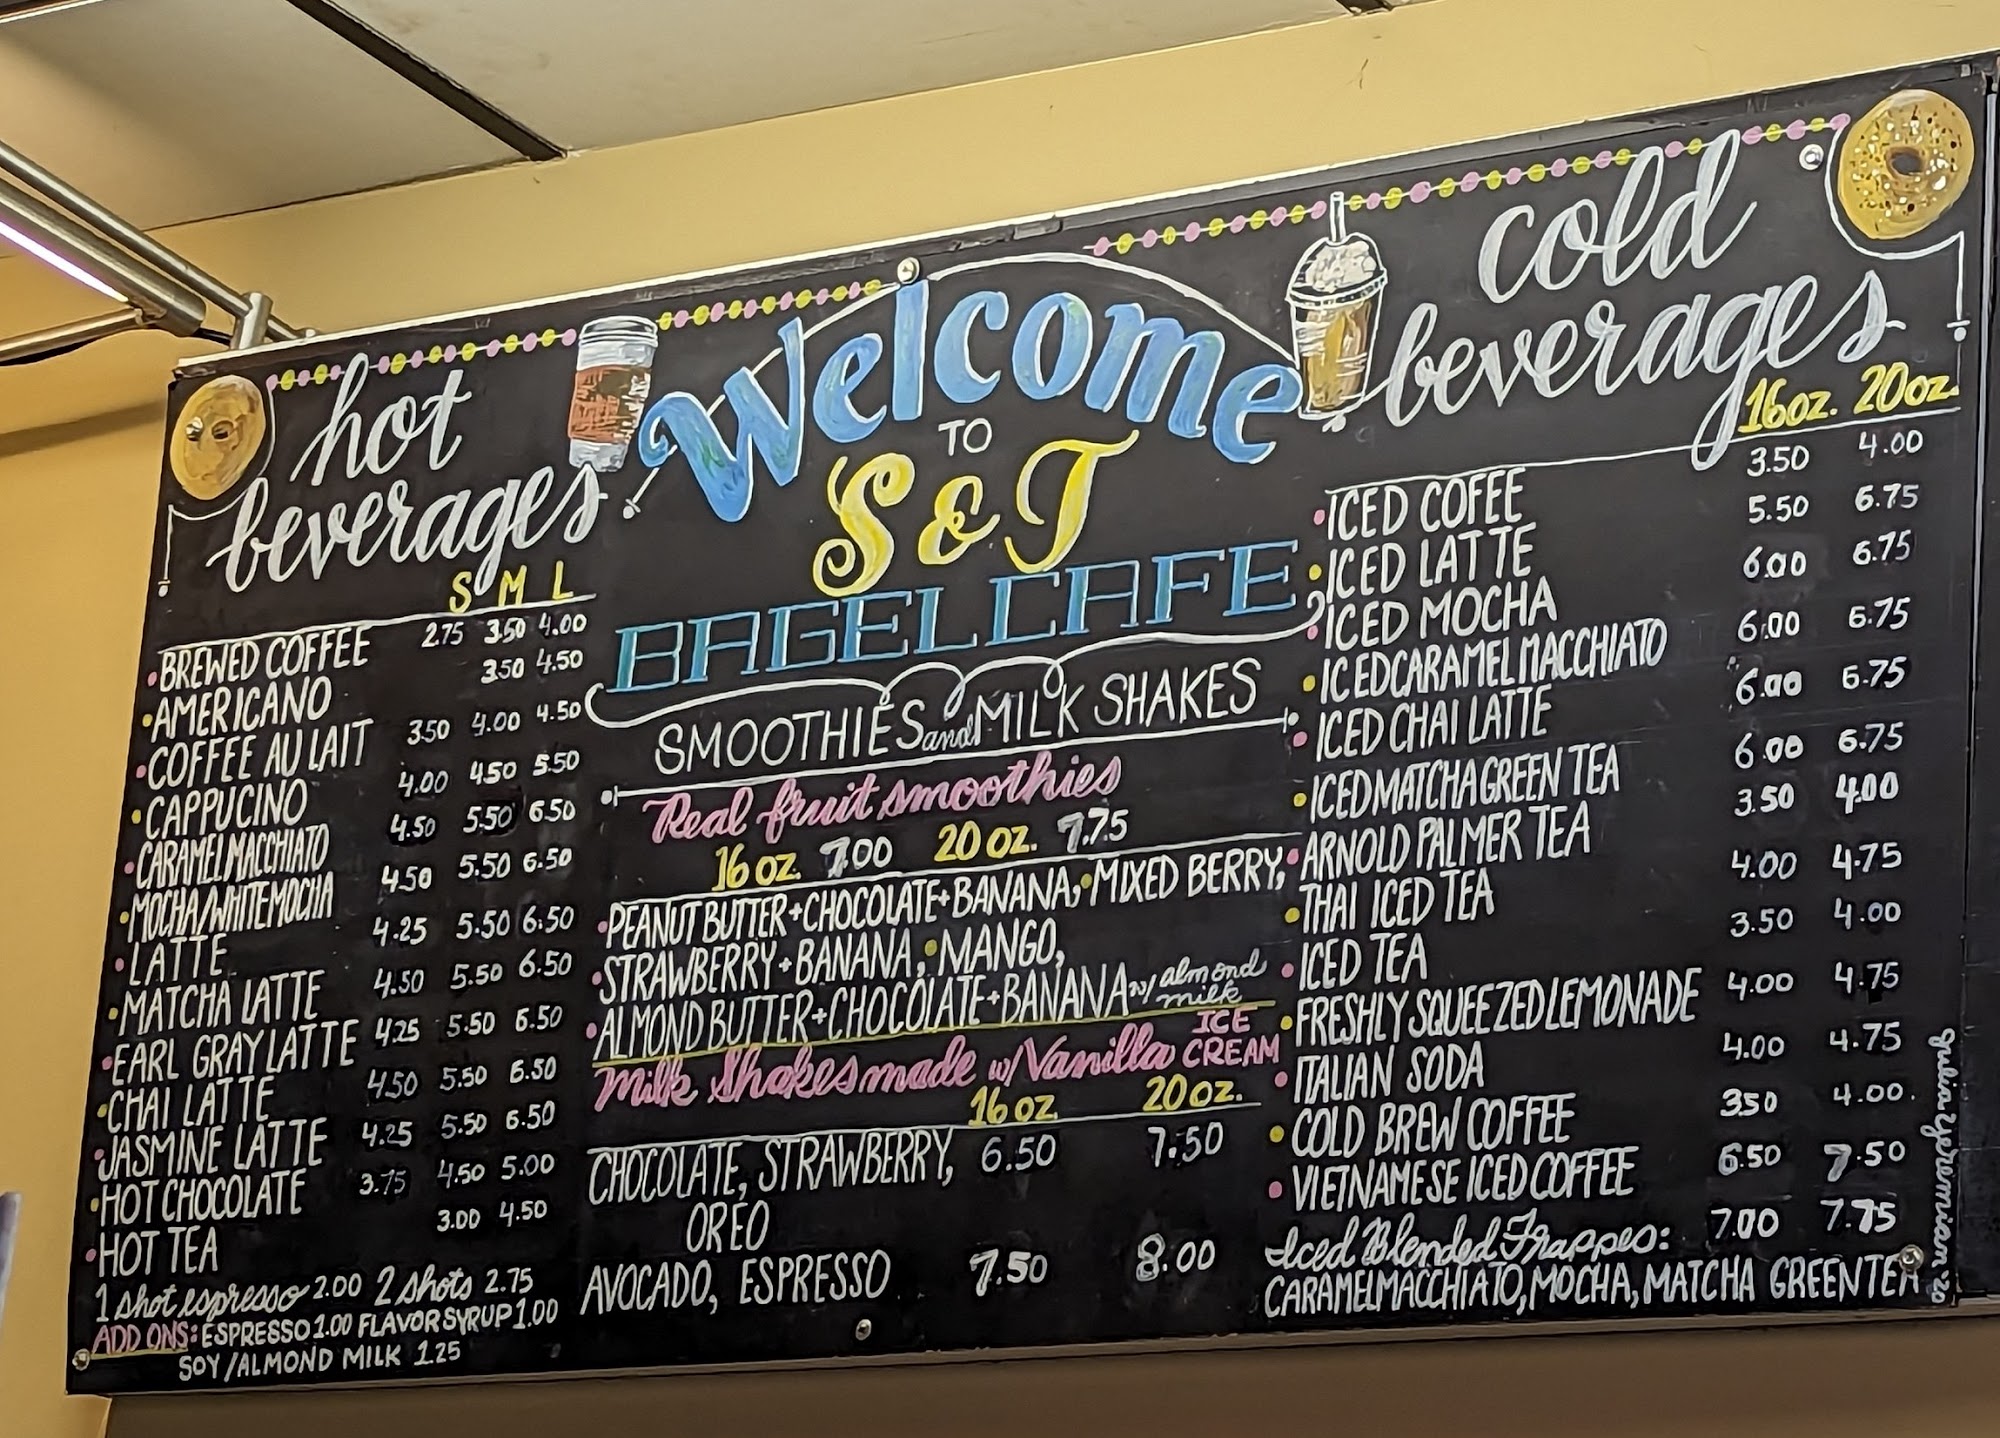 hot
beverages
S M L
BREWED COFFEE 2.75 3.50 4.00
AMERICANO 3.50 4.50
COFFEE AU LAIT 3.50 4.00 4.50
CAPPUCINO 4.00 4.50 5.50
CARAMEL MACCHIATO 4.50 5.50 6.50
MOCHA/WHITE MOCHA 4.50 5.50 6.50
LATTE 4.25 5.50 6.50
MATCHA LATTE 4.50 5.50 6.50
EARL GRAY LATTE 4.25 5.50 6.50
CHAI LATTE 4.50 5.50 6.50
JASMINE LATTE 4.25 5.50 6.50
HOT CHOCOLATE 3.75 4.50 5.00
HOT TEA 3.00 4.50
1 shot espresso 2.00 2 shots 2.75
ADD ONS: ESPRESSO 1.00 FLAVOR SYRUP 1.00
SOY/ALMOND MILK 1.25
Welcome
TO
S & T
BAGEL CAFE
SMOOTHIES and MILK SHAKES
Real fruit smoothies
16 oz. 7.00 20 oz. 7.75
PEANUT BUTTER + CHOCOLATE + BANANA, MIXED BERRY,
STRAWBERRY + BANANA, MANGO,
ALMOND BUTTER + CHOCOLATE + BANANA w/ almond milk
Milk Shakes made w/ Vanilla ICE CREAM
16 oz. 20 oz.
CHOCOLATE, STRAWBERRY, 6.50 7.50
OREO
AVOCADO, ESPRESSO 7.50 8.00
cold
beverages
16 oz. 20 oz.
ICED COFEE 3.50 4.00
ICED LATTE 5.50 6.75
ICED MOCHA 6.00 6.75
ICED CARAMEL MACCHIATO 6.00 6.75
ICED CHAI LATTE 6.00 6.75
ICED MATCHA GREEN TEA 6.00 6.75
ARNOLD PALMER TEA 3.50 4.00
THAI ICED TEA 4.00 4.75
ICED TEA 3.50 4.00
FRESHLY SQUEEZED LEMONADE 4.00 4.75
ITALIAN SODA 4.00 4.75
COLD BREW COFFEE 3.50 4.00.
VIETNAMESE ICED COFFEE 6.50 7.50
Iced Blended Frappes: 7.00 7.75
CARAMEL MACCHIATO, MOCHA, MATCHA GREEN TEA